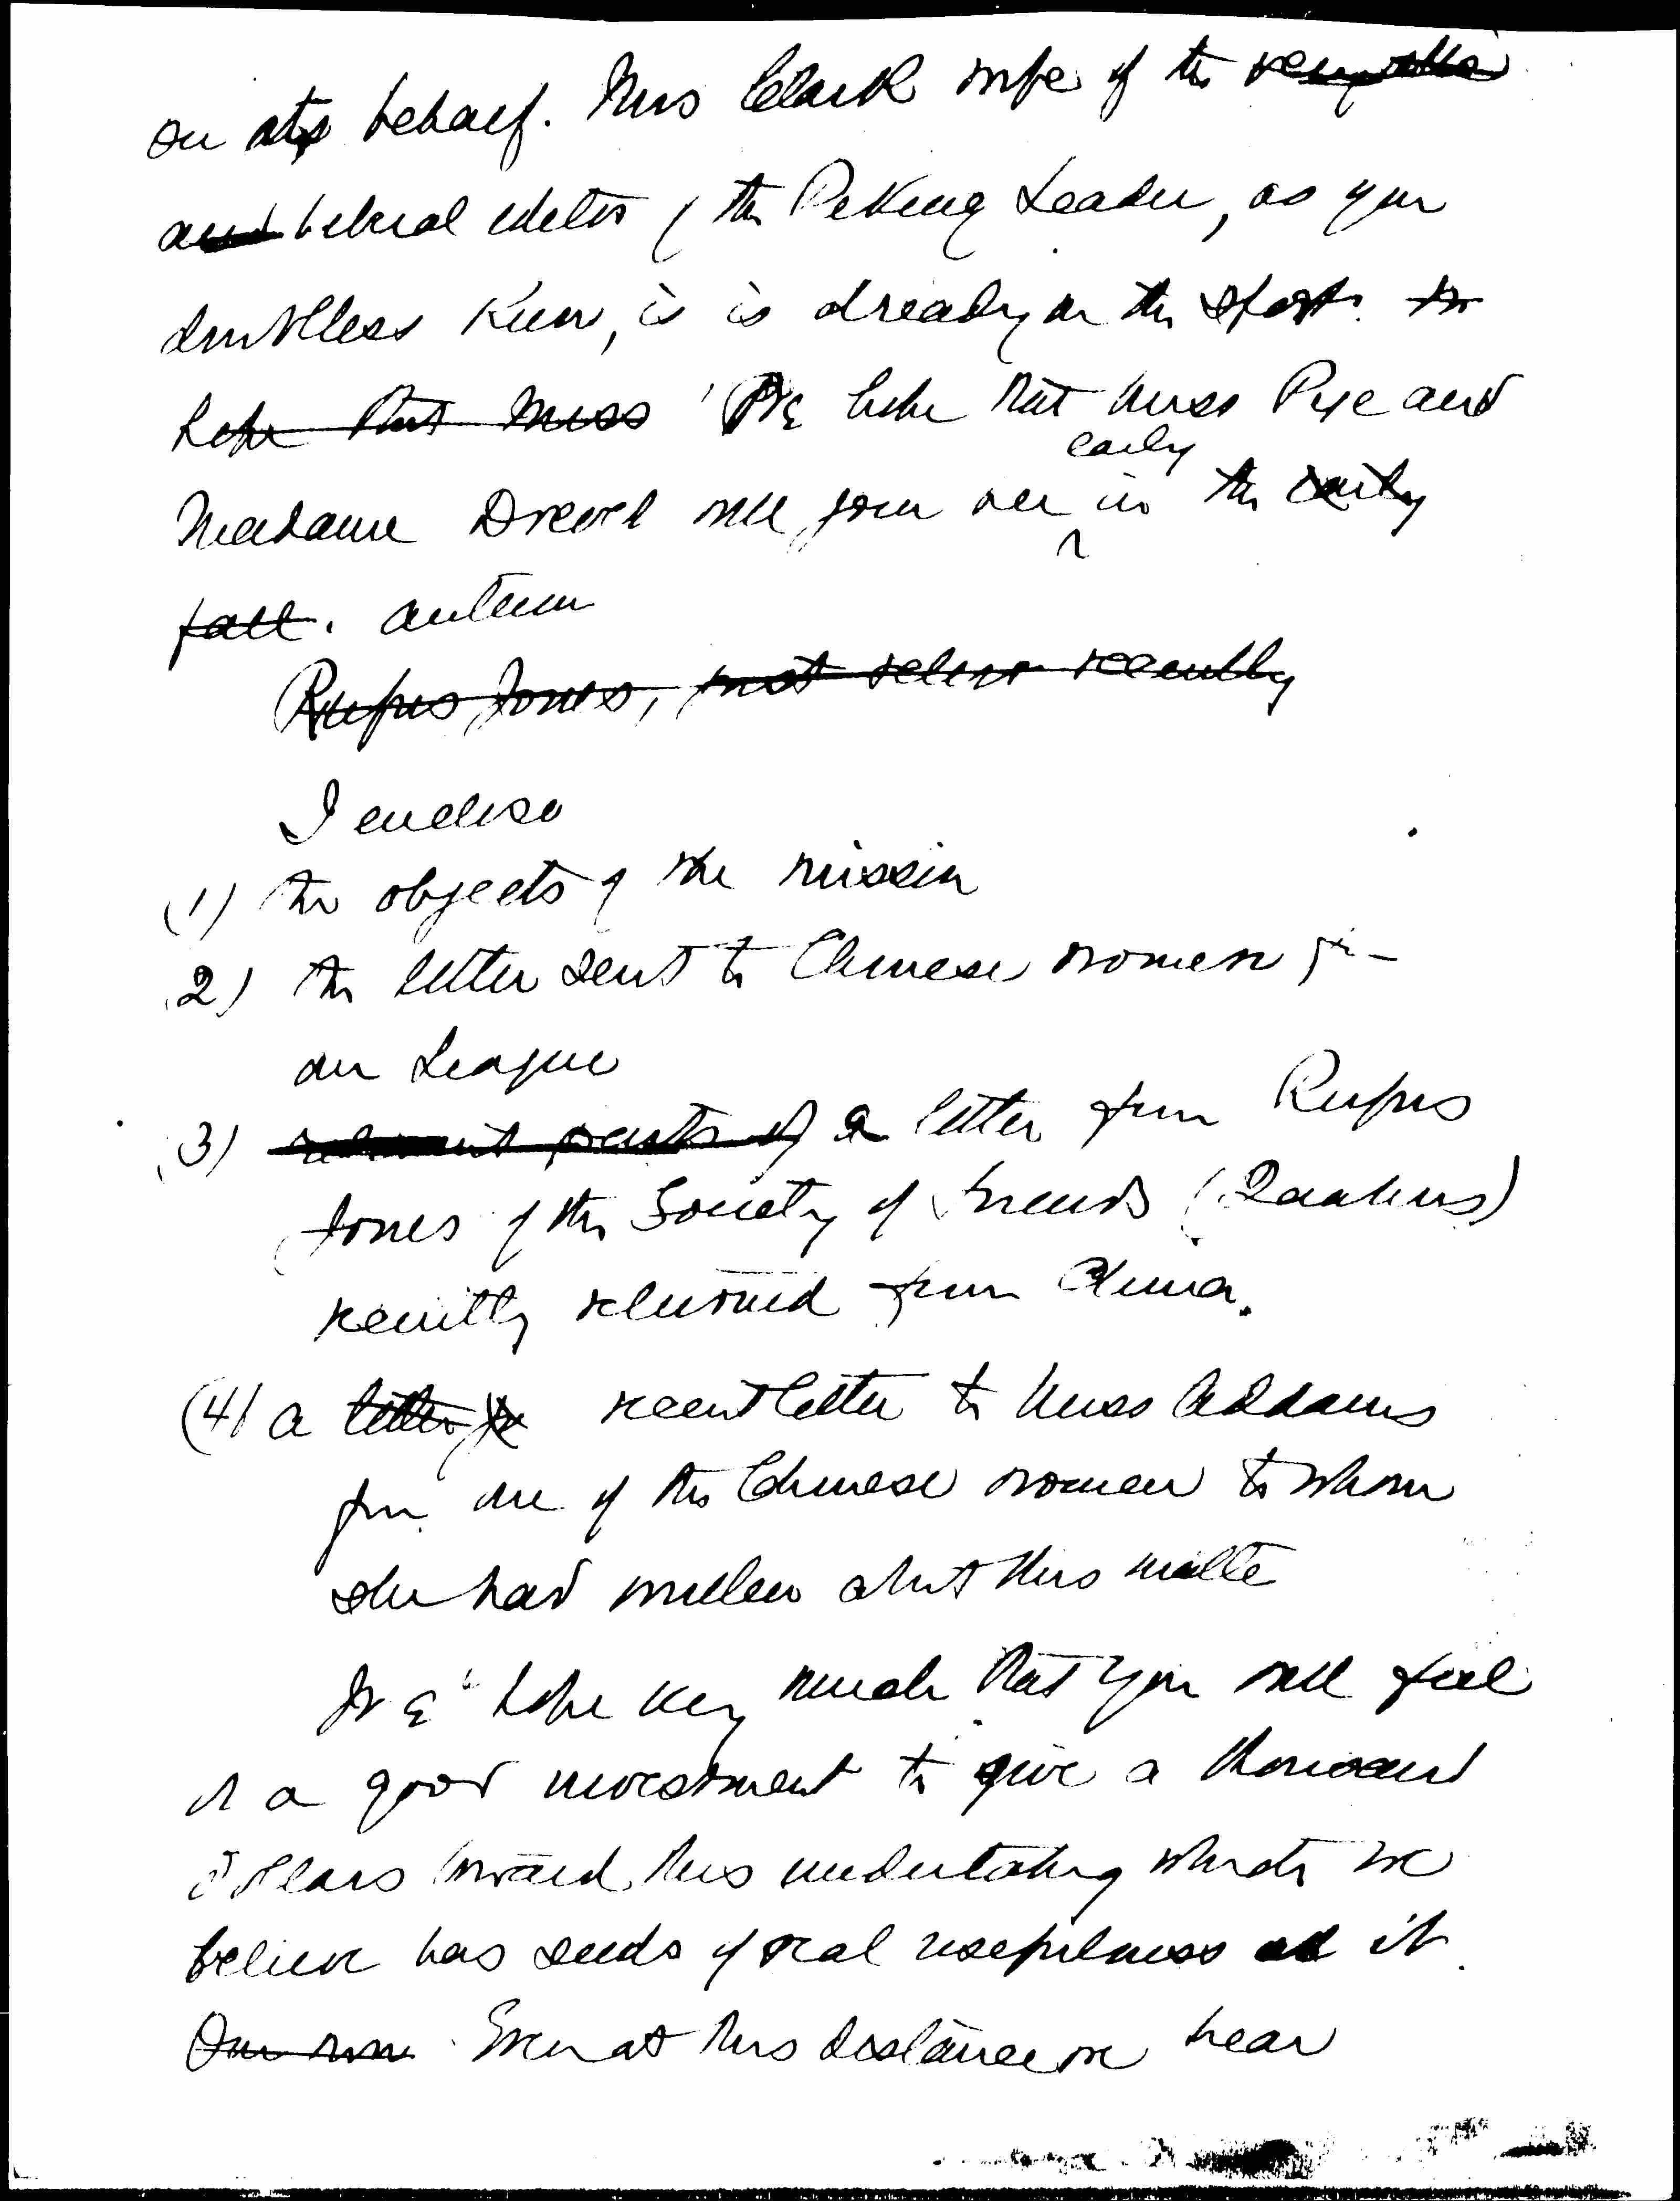 on its behalf. Mrs Clark wife of the
and liberal editor of the Peking Leader, as you
doubtless know, is is already on the spot. We
hope that Miss We hope that Miss Pye and
early
Madame Drevet will join her in the early
fall. autumn
Rufus Jones, just return recently
I enclose
(1) the objects of the mission
(2) the letter sent to Chinese women from
our League
(3) relevant parts of a letter from Rufus
Jones of the Society of Friends (Quakers)
recently returned from China.
(4) a letter fr recent letter to Miss Addams
from one of the Chinese women to whom
she had written about this matter
We hope very much that you will feel
it a good investment to give a thousand
dollars toward this undertaking which we
believe has seeds of real usefulness in it.
Our now Even at this distance we hear